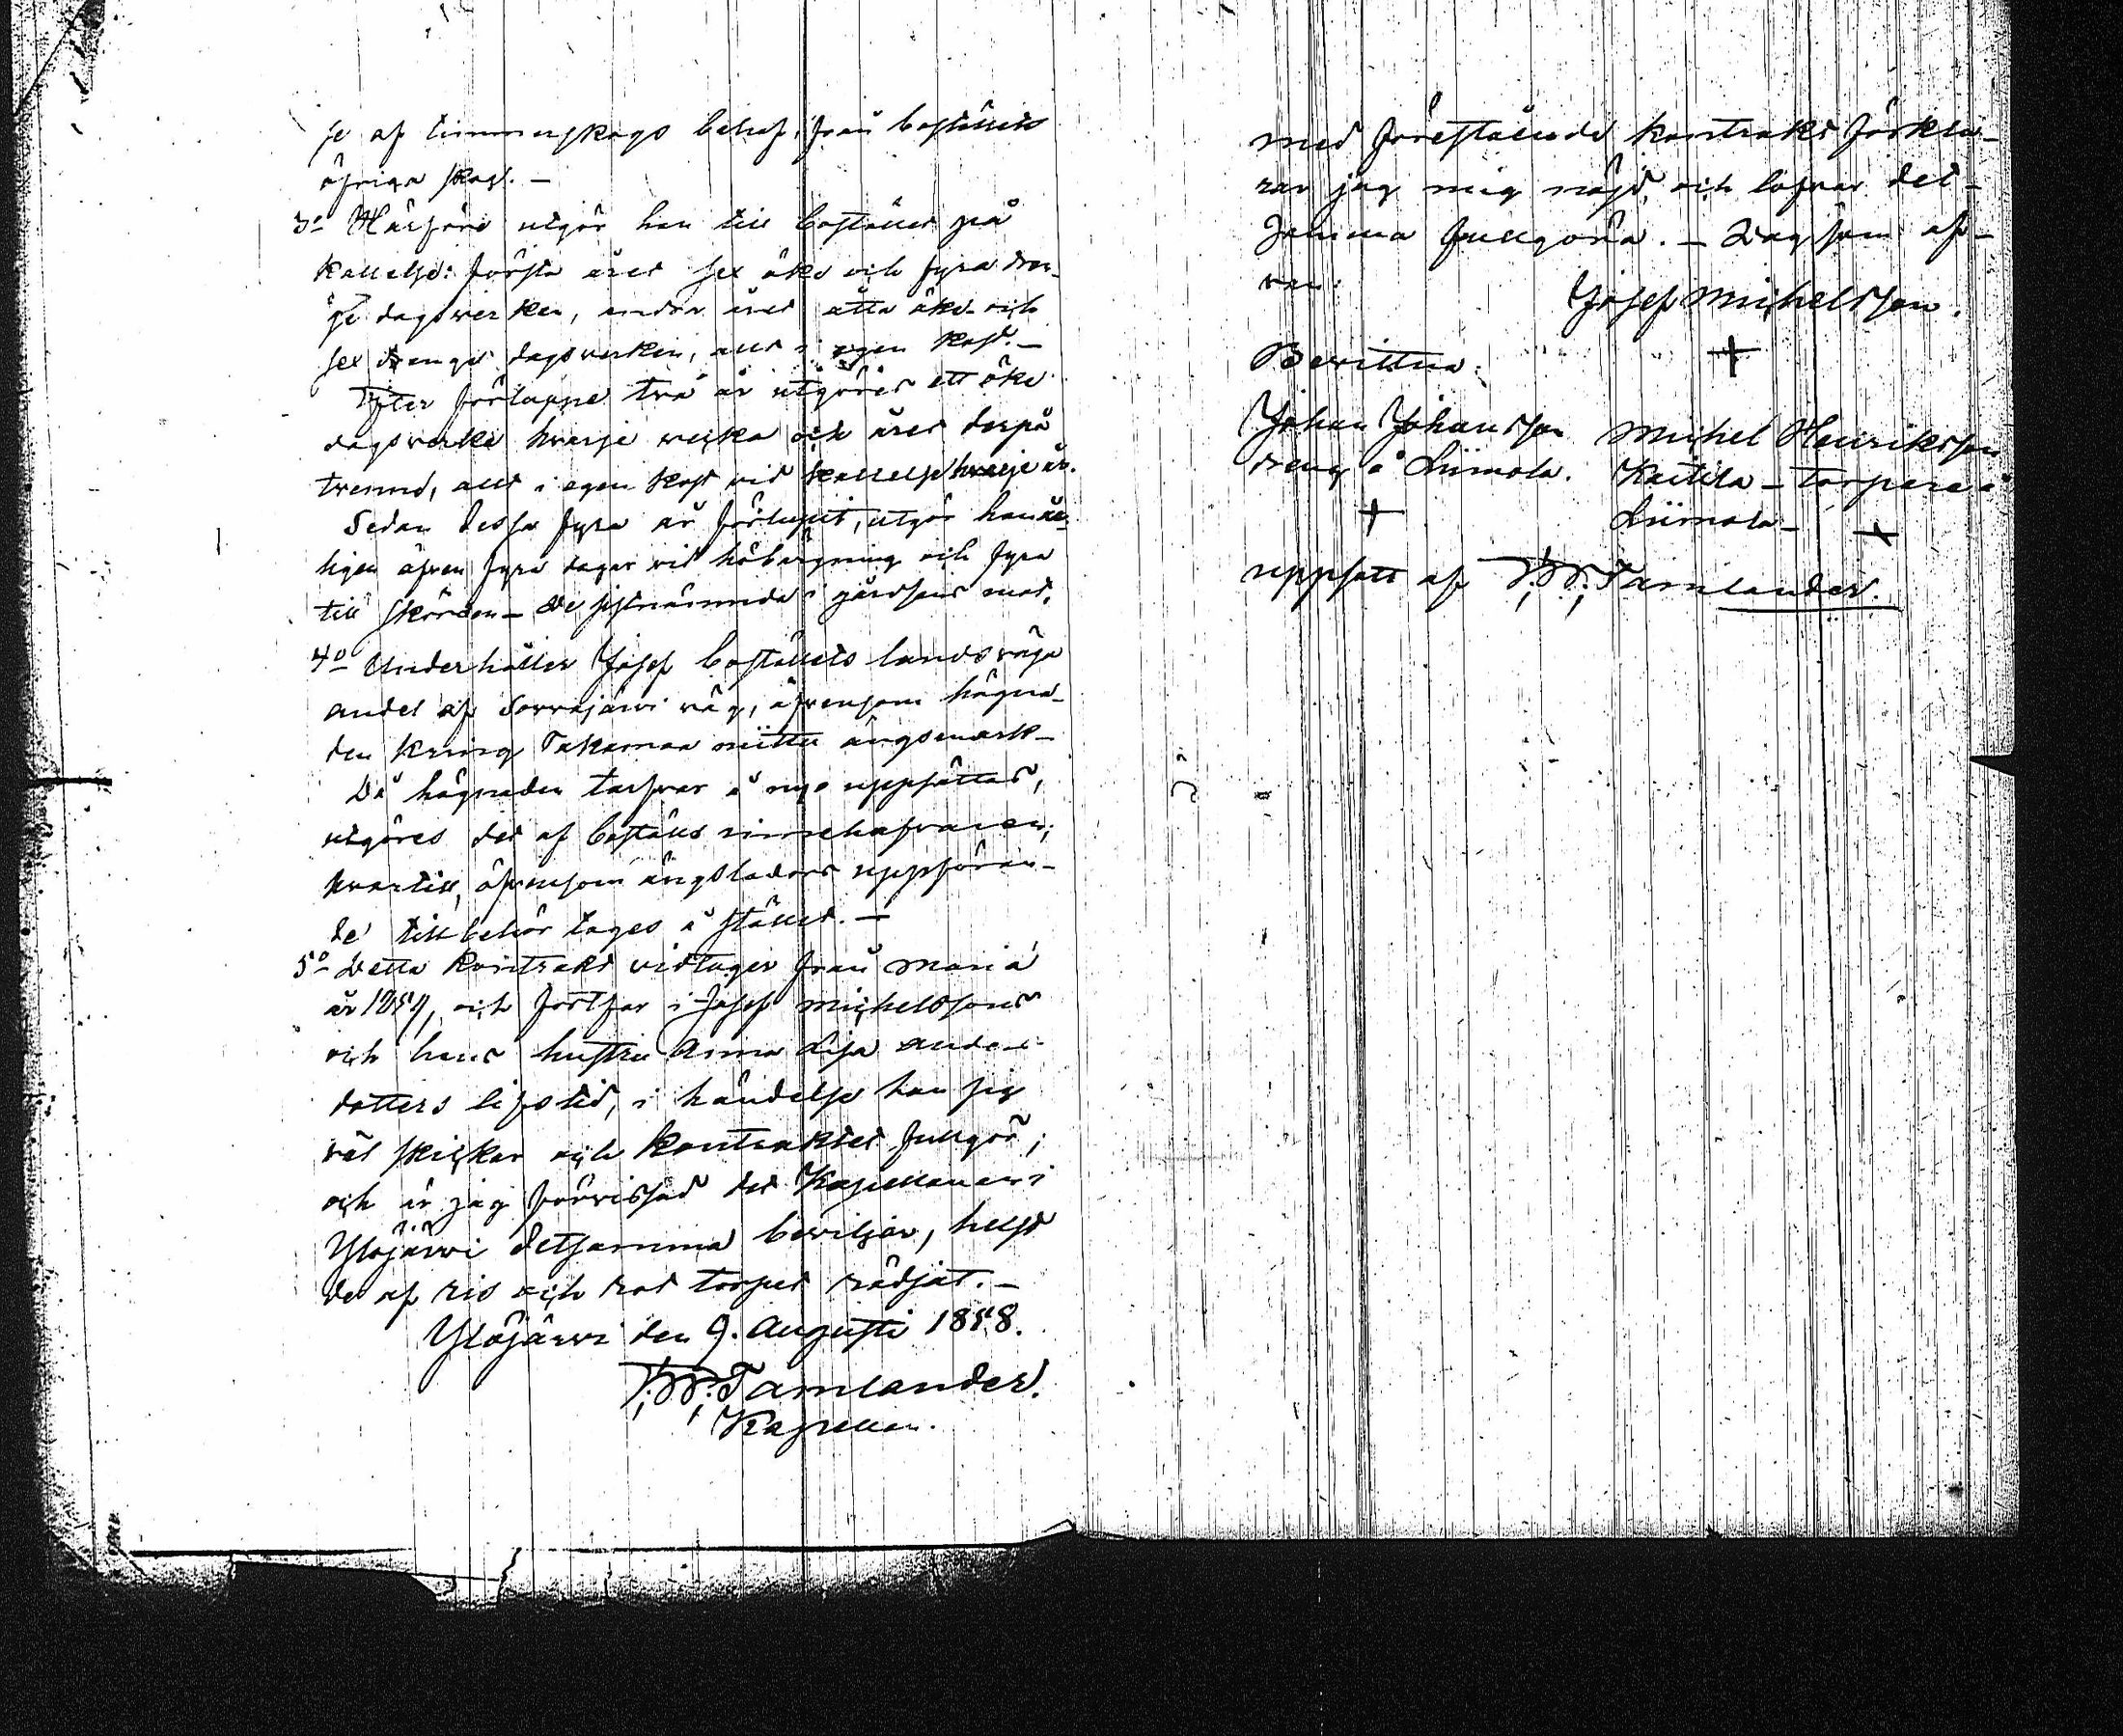 se af timmerskogs behof, från boställets
öfriga skog. —
3o Härföre utgör han till bostället på
kallelse: första året sex öke och fyra dren-
ge dagsverken, andra året åtta öke och
sex drenge dagsverken, allt i egen kost. —
Efter förlupne två år utgöres ett öke
dagsverke hvarje vecka och året derpå
tvenne, allt i egen kost vid kallelse hvarje år.
Sedan dessa fyra år förlupit, utgör han år-
ligen äfven fyra dagar vid höbergning och fyra
till skörden — de sistnämnda i gårdens mat.
4o Underhåller Josef boställets landsväga
andel af Sorrajärvi väg, äfvensom hägna-
den kring Takamaa niittu ängsmark —
Då hägnaden tarfvar å nyo uppsättas,
utgöres det af boställs innehafvaren;
hvartill, äfvensom ängsladors uppföran-
de tillbehör tages å stället. —
5o Detta kontrakt vidtager från Mariä
år 1859, och fortfar i Josef Michelssons
och hans hustru Anna Lisa Anders
dotters lifstid, i händelse han sig
väl skickar och kontraktet fullgör;
och är jag förvissad det Kapellanen i
Ylöjärvi detsamma beviljar, helst
de af ris och rot torpet rödjat. —
Ylöjärvi den 9. Augusti 1858.
F. W. Tamlander.
Kapellan.
Med förestående kontrakt förkla-
rar jag mig nöjd, och lofvar det-
samma fullgöra. — Dag som of-
van.
Josef Michelsson.
+
Bevittna:
Johan Johansson Michel Henriksson
dreng å Liimola. Kaitila — torpare å
+ Liimola — +
uppsatt af F. W. Tamlander.